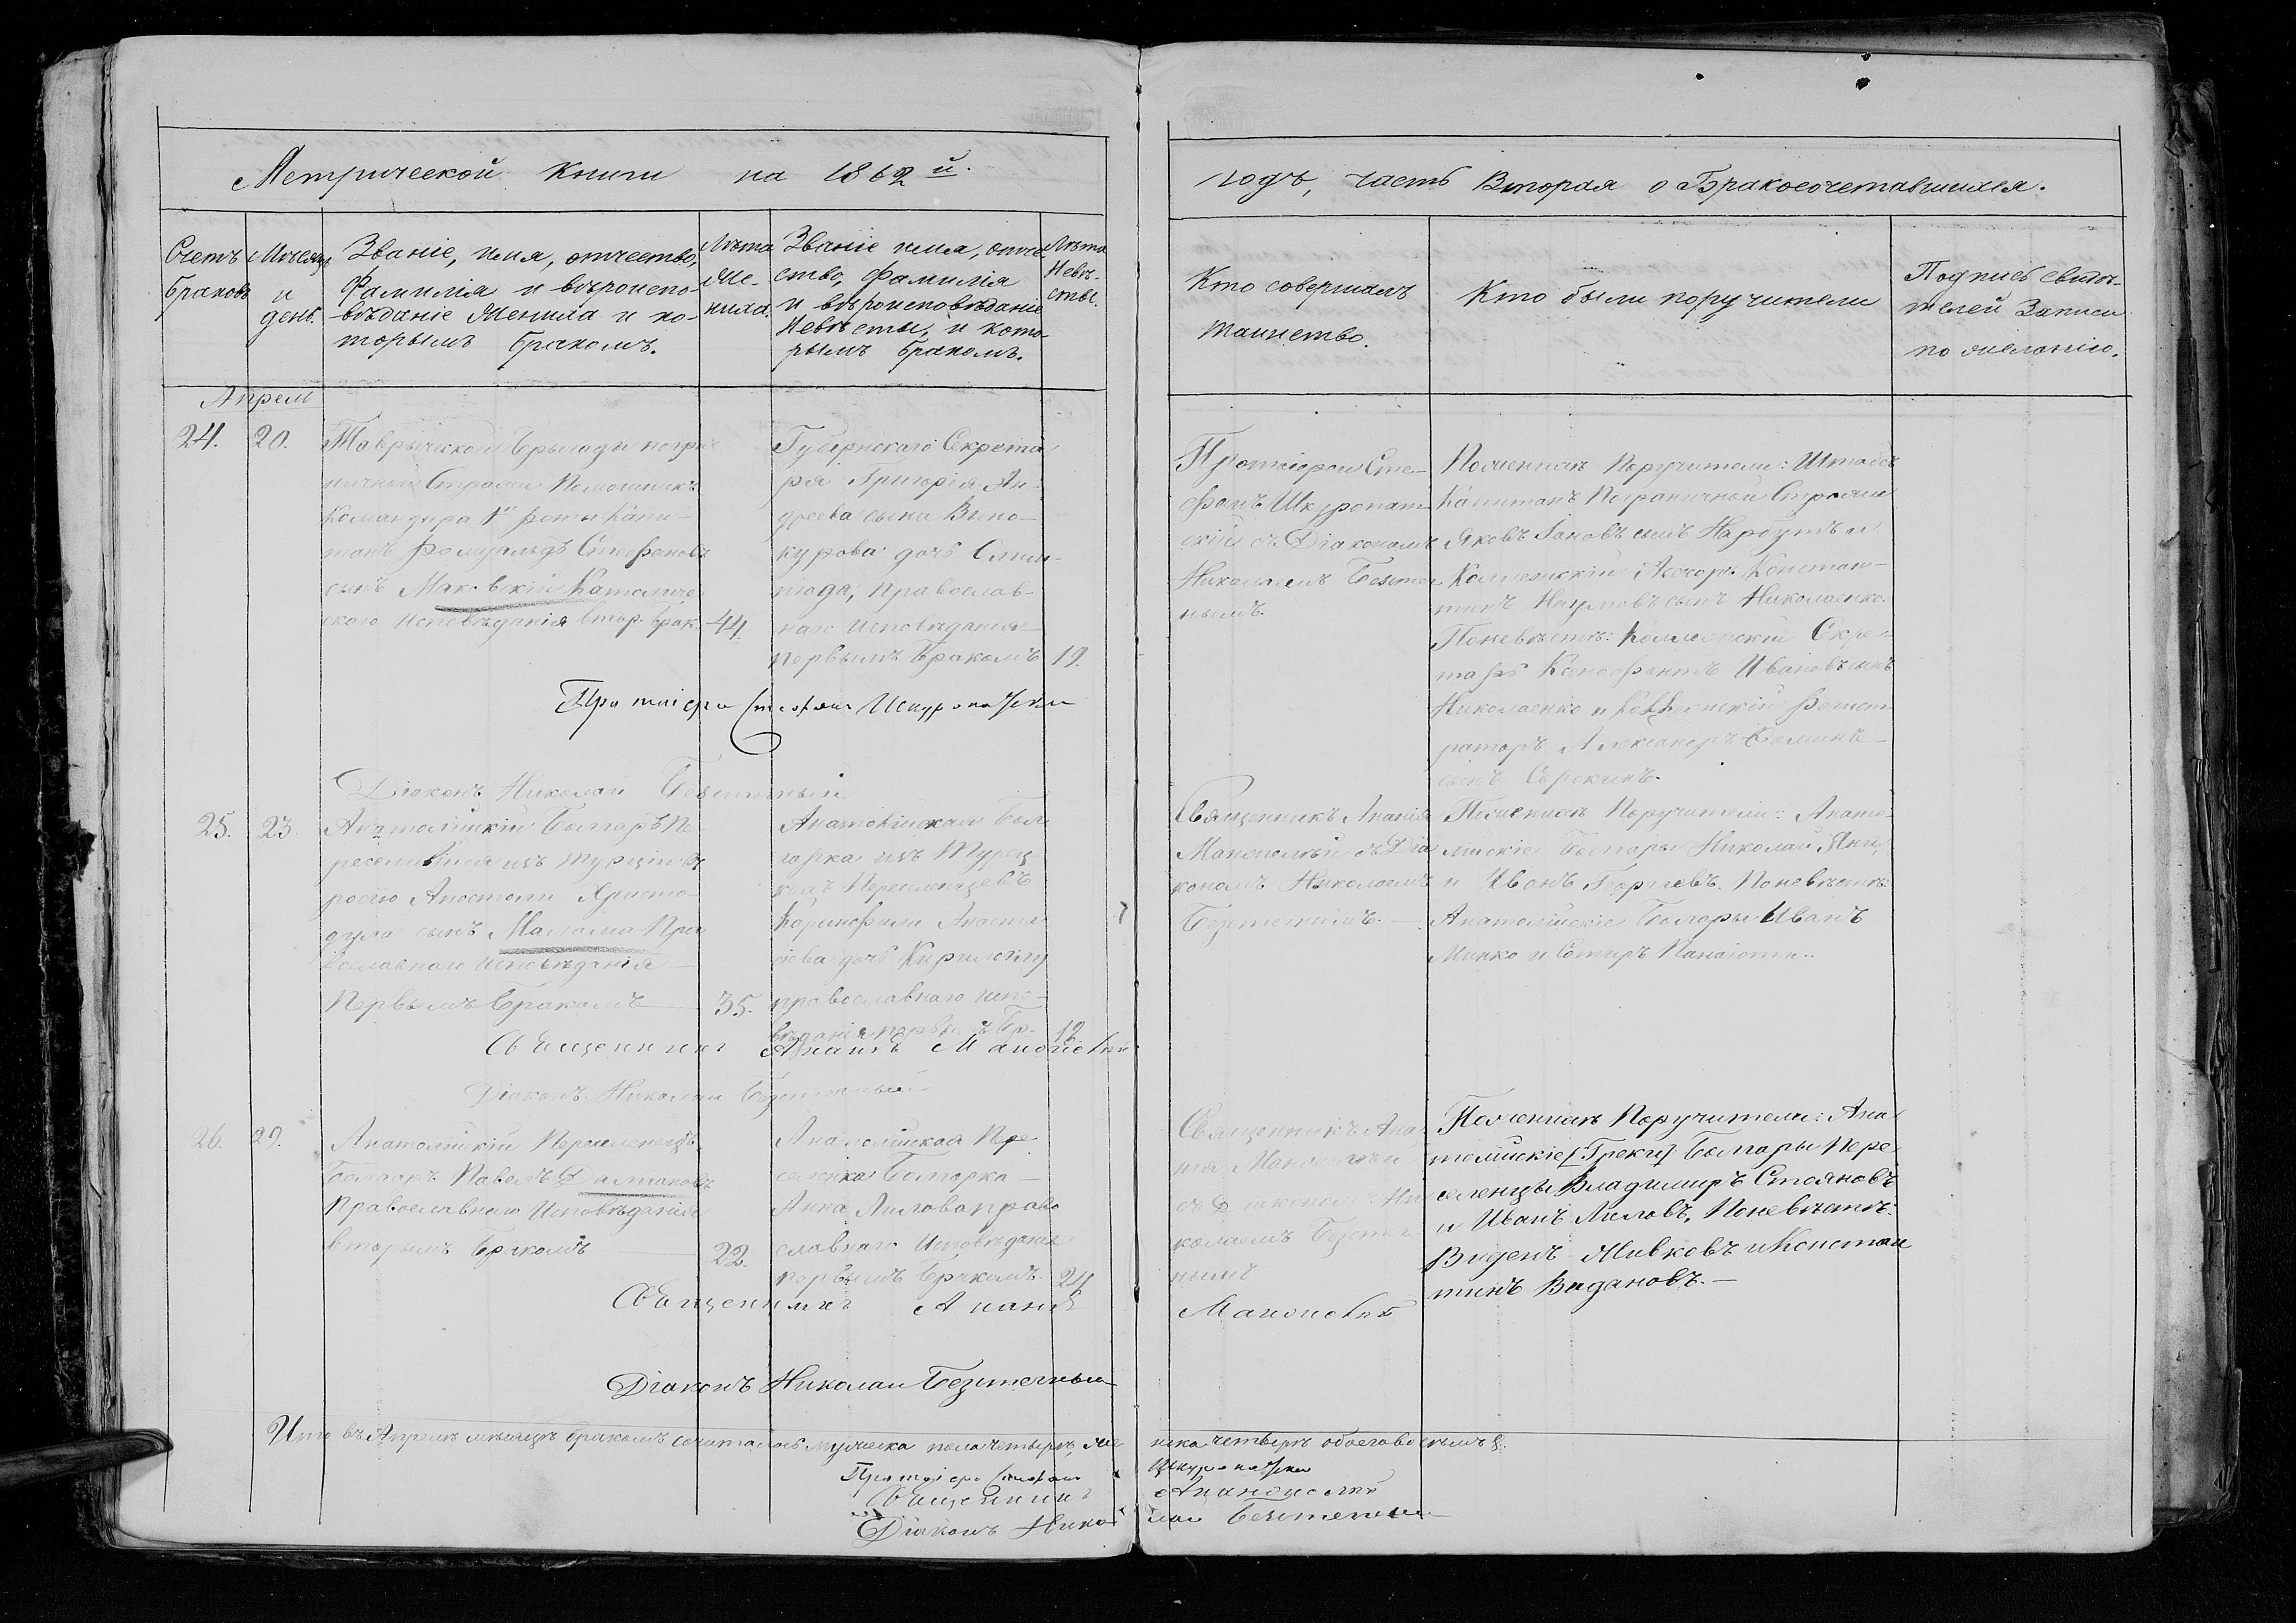 Метрической Книги на 1862й.
годъ, часть Вторая о Бракосочетавшихся.
Счетъ
браковъ
Мѣсяцъ
и
день.
Званіе, имя, отчество,
Фамилія и вѣроиспо-
вѣданіе Жениха и ко-
торымъ бракомъ.
Лѣта
Же-
ниха.
Званіе имя, отче
ство, фамилія
и вѣроисповѣданіе
Невѣсты, и кото-
рымъ бракомъ.
Лѣта
Невѣ-
сты.
Кто совершалъ
таинство.
Кто были поручители
Подпись свидѣ-
телей Записи
по желанію.
Апрель
24.
20.
Таврической бригады погра
ничной Стражи Помошникъ
Командира роты Капи-
танъ Ромуальдъ Стефановъ
сынъ Маковскій Католиче
скаго Исповѣданія втор. брак.
44.
Губернскаго Секрета
ря Григорія Ан-
дреева сына Вино-
курова дочь Олим-
піада, Православ-
наго Исповѣданія
первымъ Бракомъ
19.
Протоіерей Сте-
фанъ Шкуропат
скій съ Діакономъ
Николаемъ Безтеч
нымъ.
По жениху Поручители: Штабсъ
Капитанъ Пограничной Стражи
Яковъ сынъ Нарбутъ и
Колежскій Константинъ
Наумовъ сынъ Николаенко.
По невѣстѣ: Коллежскій Секре-
тарь Ксенофонтъ Ивановъ сынъ
Николаенко и Коллежскій Регист
раторъ Александръ
сынъ Сорокинъ.
Протоіерей Стефанъ Шкуропатскій
Діаконъ Николай Безтечный
25.
23.
Анатолійскій Болгаръ Пе-
реселившійся изъ Турціи въ
росію Апостоли Христо-
дула сынъ Малама Пра
вославнаго исповѣданія
Первымъ Бракомъ
35.
Анатолійская Бол
гарка изъ Турец
кихъ Переселенцевъ
Анаста
сіева дочь
православнаго испо-
вѣданія первымъ Бр.
19.
Священникъ Ананія
съ Діа
кономъ Николаемъ
Безтечнымъ.
По жениху Поручители: Анато-
лискіе Болгары Николай Яни,
и Иванъ Георгіевъ. По невѣстѣ:
Анатолійскіе Болгары Иванъ
Минко и Сотиръ Панаіоти.
Священникъ Ананій
Діаконъ Николай Безтечный
26.
29.
Анатолійскій Переселенецъ
Болгаръ Павелъ
Православнаго Исповѣданія
вторымъ бракомъ
22.
Анатолійская Пере
селенка Болгарка
Анна Лилова право
славнаго Исповѣданія
первымъ бракомъ.
24
Священникъ Ана
нія
съ Діакономъ Ни
колаемъ Безтеч
нымъ
По жениху Поручители: Ана
толійскіе [Греки] Болгары Пере
селенцы Владимиръ Стояновъ
и Иванъ Лиловъ, По невѣстѣ:
Виденъ Живковъ и Констан
тинъ Видановъ.
Священникъ Ананій
Діаконъ Николай Безтечный
Итого въ Апрелѣ мѣсяцѣ бракомъ сочиталось мужеска пола четыре, же
нска четыре обоего восьмъ 8.
Протоіерей Стефанъ Шкуропатскій
Священникъ
Діаконъ Николай Безтечный